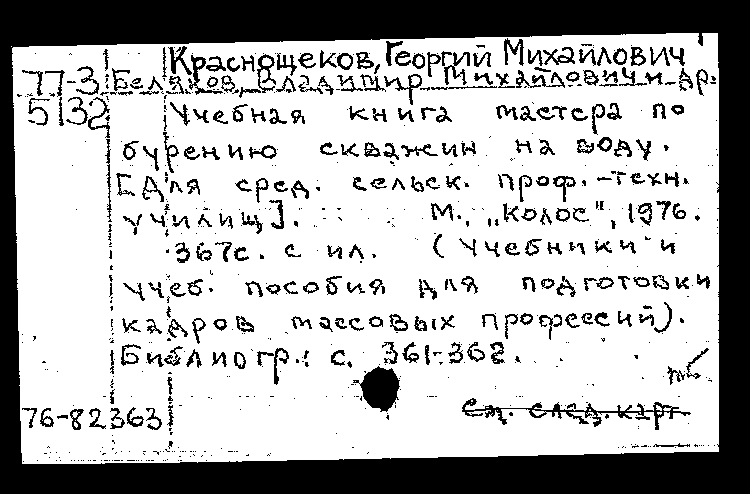 Краснощеков, Георгий Михайлович
77-3 Беляков, Владимир Михайлович и др.
5132 Учебная книга мастера по
бурению скважин на воду.
[Для сред. сельск. проф.-техн.
училищ]. М., „Колос", 1976.
367с. с ил. (Учебники и
учеб. пособия для подготовки
кадров массовых профессий).
Библиогр.: с. 361-362.
76-82363 См. след. карт